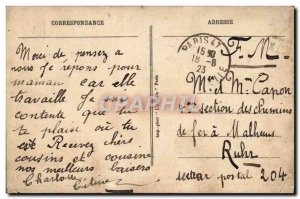 CORRESPONDANCE
ADRESSE
PARIS 47
15 30
18 - 8
23
F. M.
Moui de pensez a
vous je répons pour
maman car elle
travaille Je suis
contente que tu
te plaise où tu
est Recevez chers
cousins et cousine
nos meilleurs baisers
Charlotte
Mr et Mme Capon
section des chemins
de fer à Malheus
Ruhr
secteur postal 204
CARTHAGRAPH